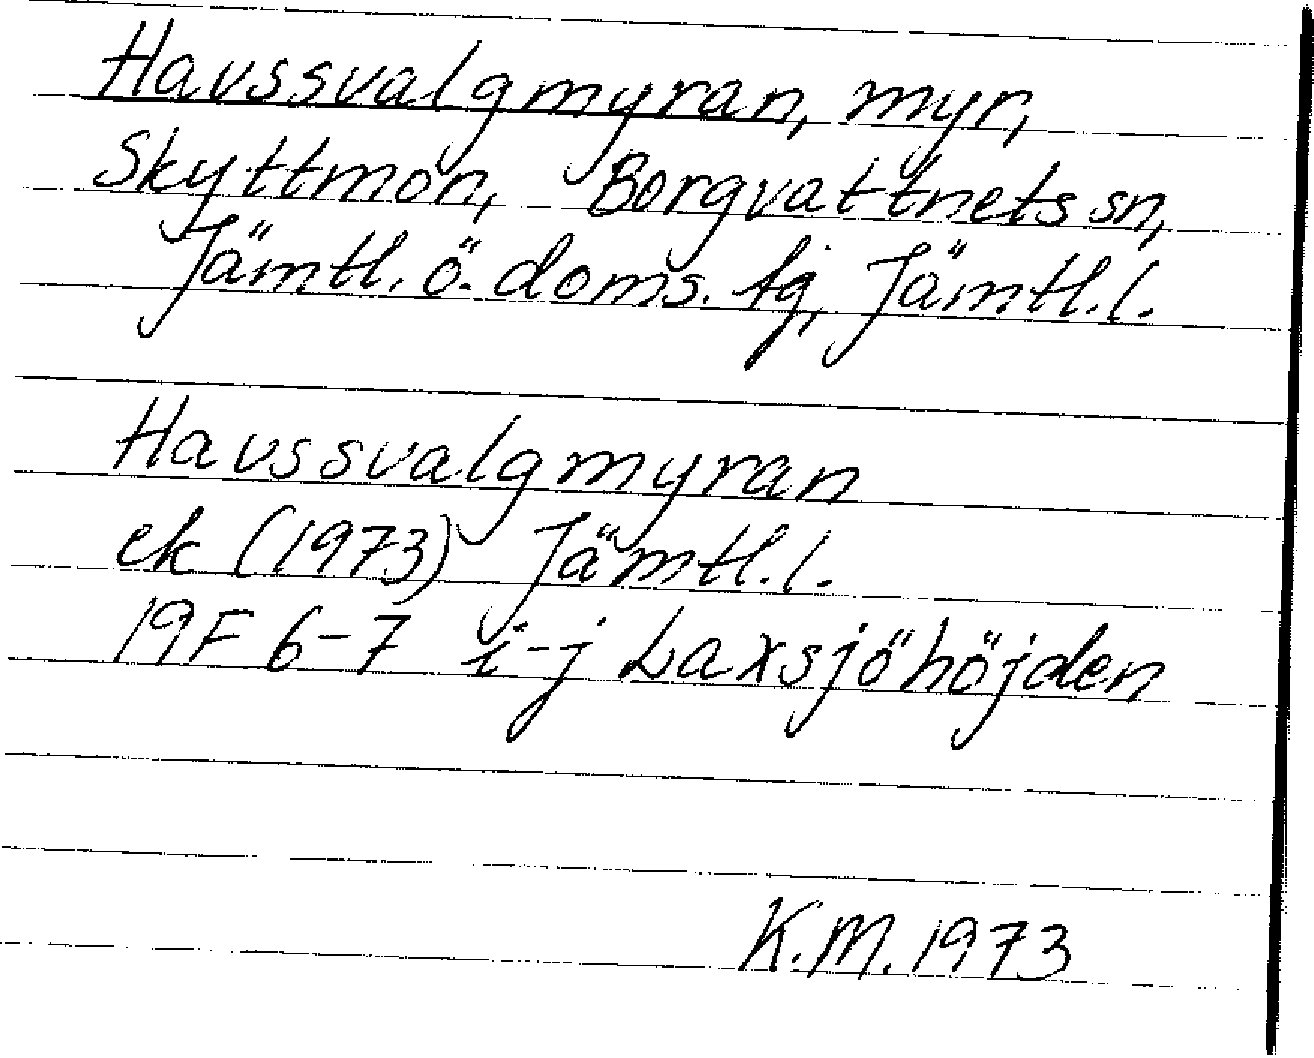 Havssvalgmyran, myr,
Skyttmon, Borgvattnets sn,
Jämtl. ö. doms. tg, Jämtl. l.
Havssvalgmyran
ek (1973) Jämtl. l.
19F 6-7 i-j Laxsjöhöjden
K.M. 1973